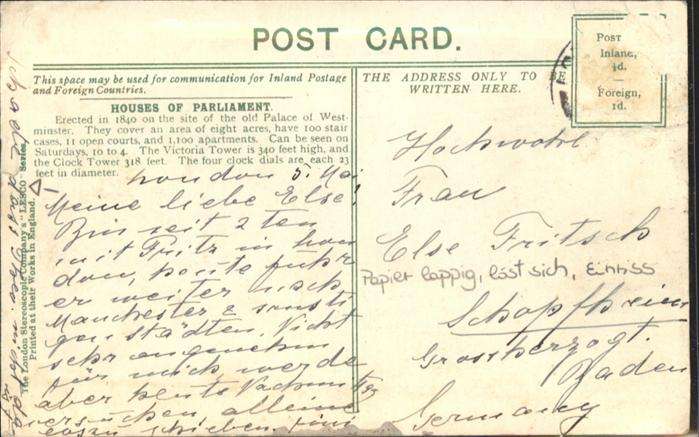 POST CARD.
This space may be used for communication for Inland Postage
and Foreign Countries.
HOUSES OF PARLIAMENT.
Erected in 1840 on the site of the old Palace of West-
minster. They cover an area of eight acres, have 100 stair
cases, 11 open courts, and 1,100 apartments. Can be seen on
Saturdays, 10 to 4. The Victoria Tower is 340 feet high, and
the Clock Tower 318 feet. The four clock dials are each 23
feet in diameter.
London 5. Mai
Meine liebe Else!
Bin seit 2 ten
mit Fritz in Lon
don, heute fuhr
er weiter nach
Manchester & sonsti
gen Städten. Nicht
sehr angenehm
für mich, werde
aber heute Nachmittag
versuchen, alleine
The London Stereoscopic Company's "LESCO" Series.
Printed at their Works in England.
THE ADDRESS ONLY TO BE
WRITTEN HERE.
POST
Inland,
½d.
Foreign,
1d.
Hochwohl
Frau
Else Fritsch
Papier lappig, löst sich, Einriss
Schopfheim
Grossherzogt.
Baden
Germany